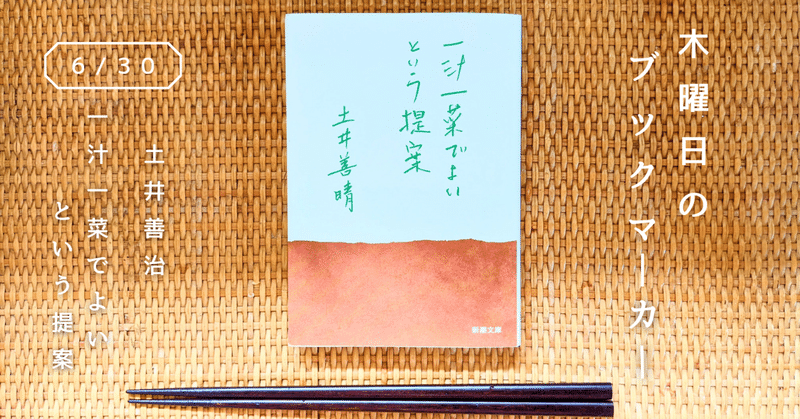 木曜日の
ブックマーカー
一汁一菜でよい
という提案
土井善晴
新潮文庫
6/30
土井善治
一汁一菜でよい
という提案